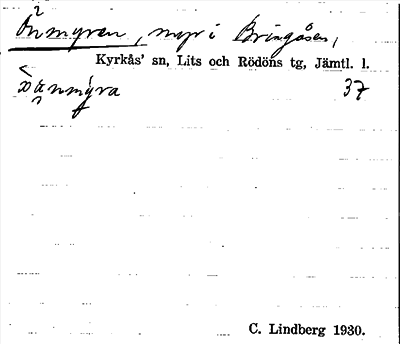 Önmyren, myr i Bringåsen,
Kyrkås' sn, Lits och Rödöns tg, Jämtl. l.
37
C. Lindberg 1930.